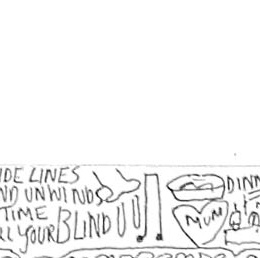 IDE LINES
ND UNWINDS
TIME
LL YOUR BLIND
MUM
DINN